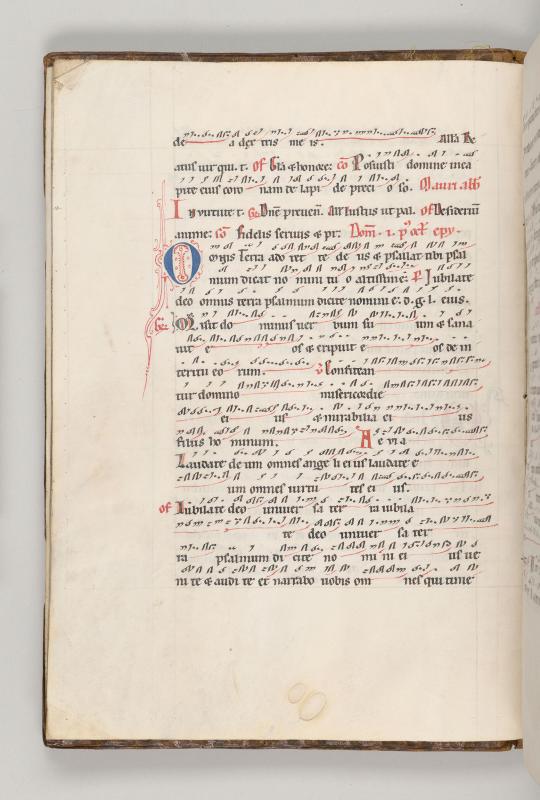 de a dex tris me is. All'a Be
atus uir qui. t. Of Gl'a & honore: Co Posuisti domine in ca
pite eius coro nam de lapi de preci o so. Mauri abb
In uirtute t. Gr. Dne preuen. All' Iustus ut pal. Of Desideriu
anime: Co Fidelis seruus & pr: Dom. i. p' oct epy.
Omnis terra ado ret te de us & psallat tibi psal
mum dicat no mini tu o altissime: Ps Iubilate
deo omnis terra psalmum dicite nomini e: d. g. l. eius.
Gr. Misit do minus uer bum su um & sana
uit e os & eripuit e os de in
teritu eo rum. V Confitean
tur domino misericordie
ei us & mirabilia ei us
filiis ho minum. A e uia
Laudate de um omnes ange li ei us laudate e
um omnes uirtu tes ei us.
Of Iubilate deo uniuer sa ter ra iubila
te deo uniuer sa ter
ra psalmum di cite no mi ni ei us ue
ni te & audi te et narrabo uobis om nes qui time